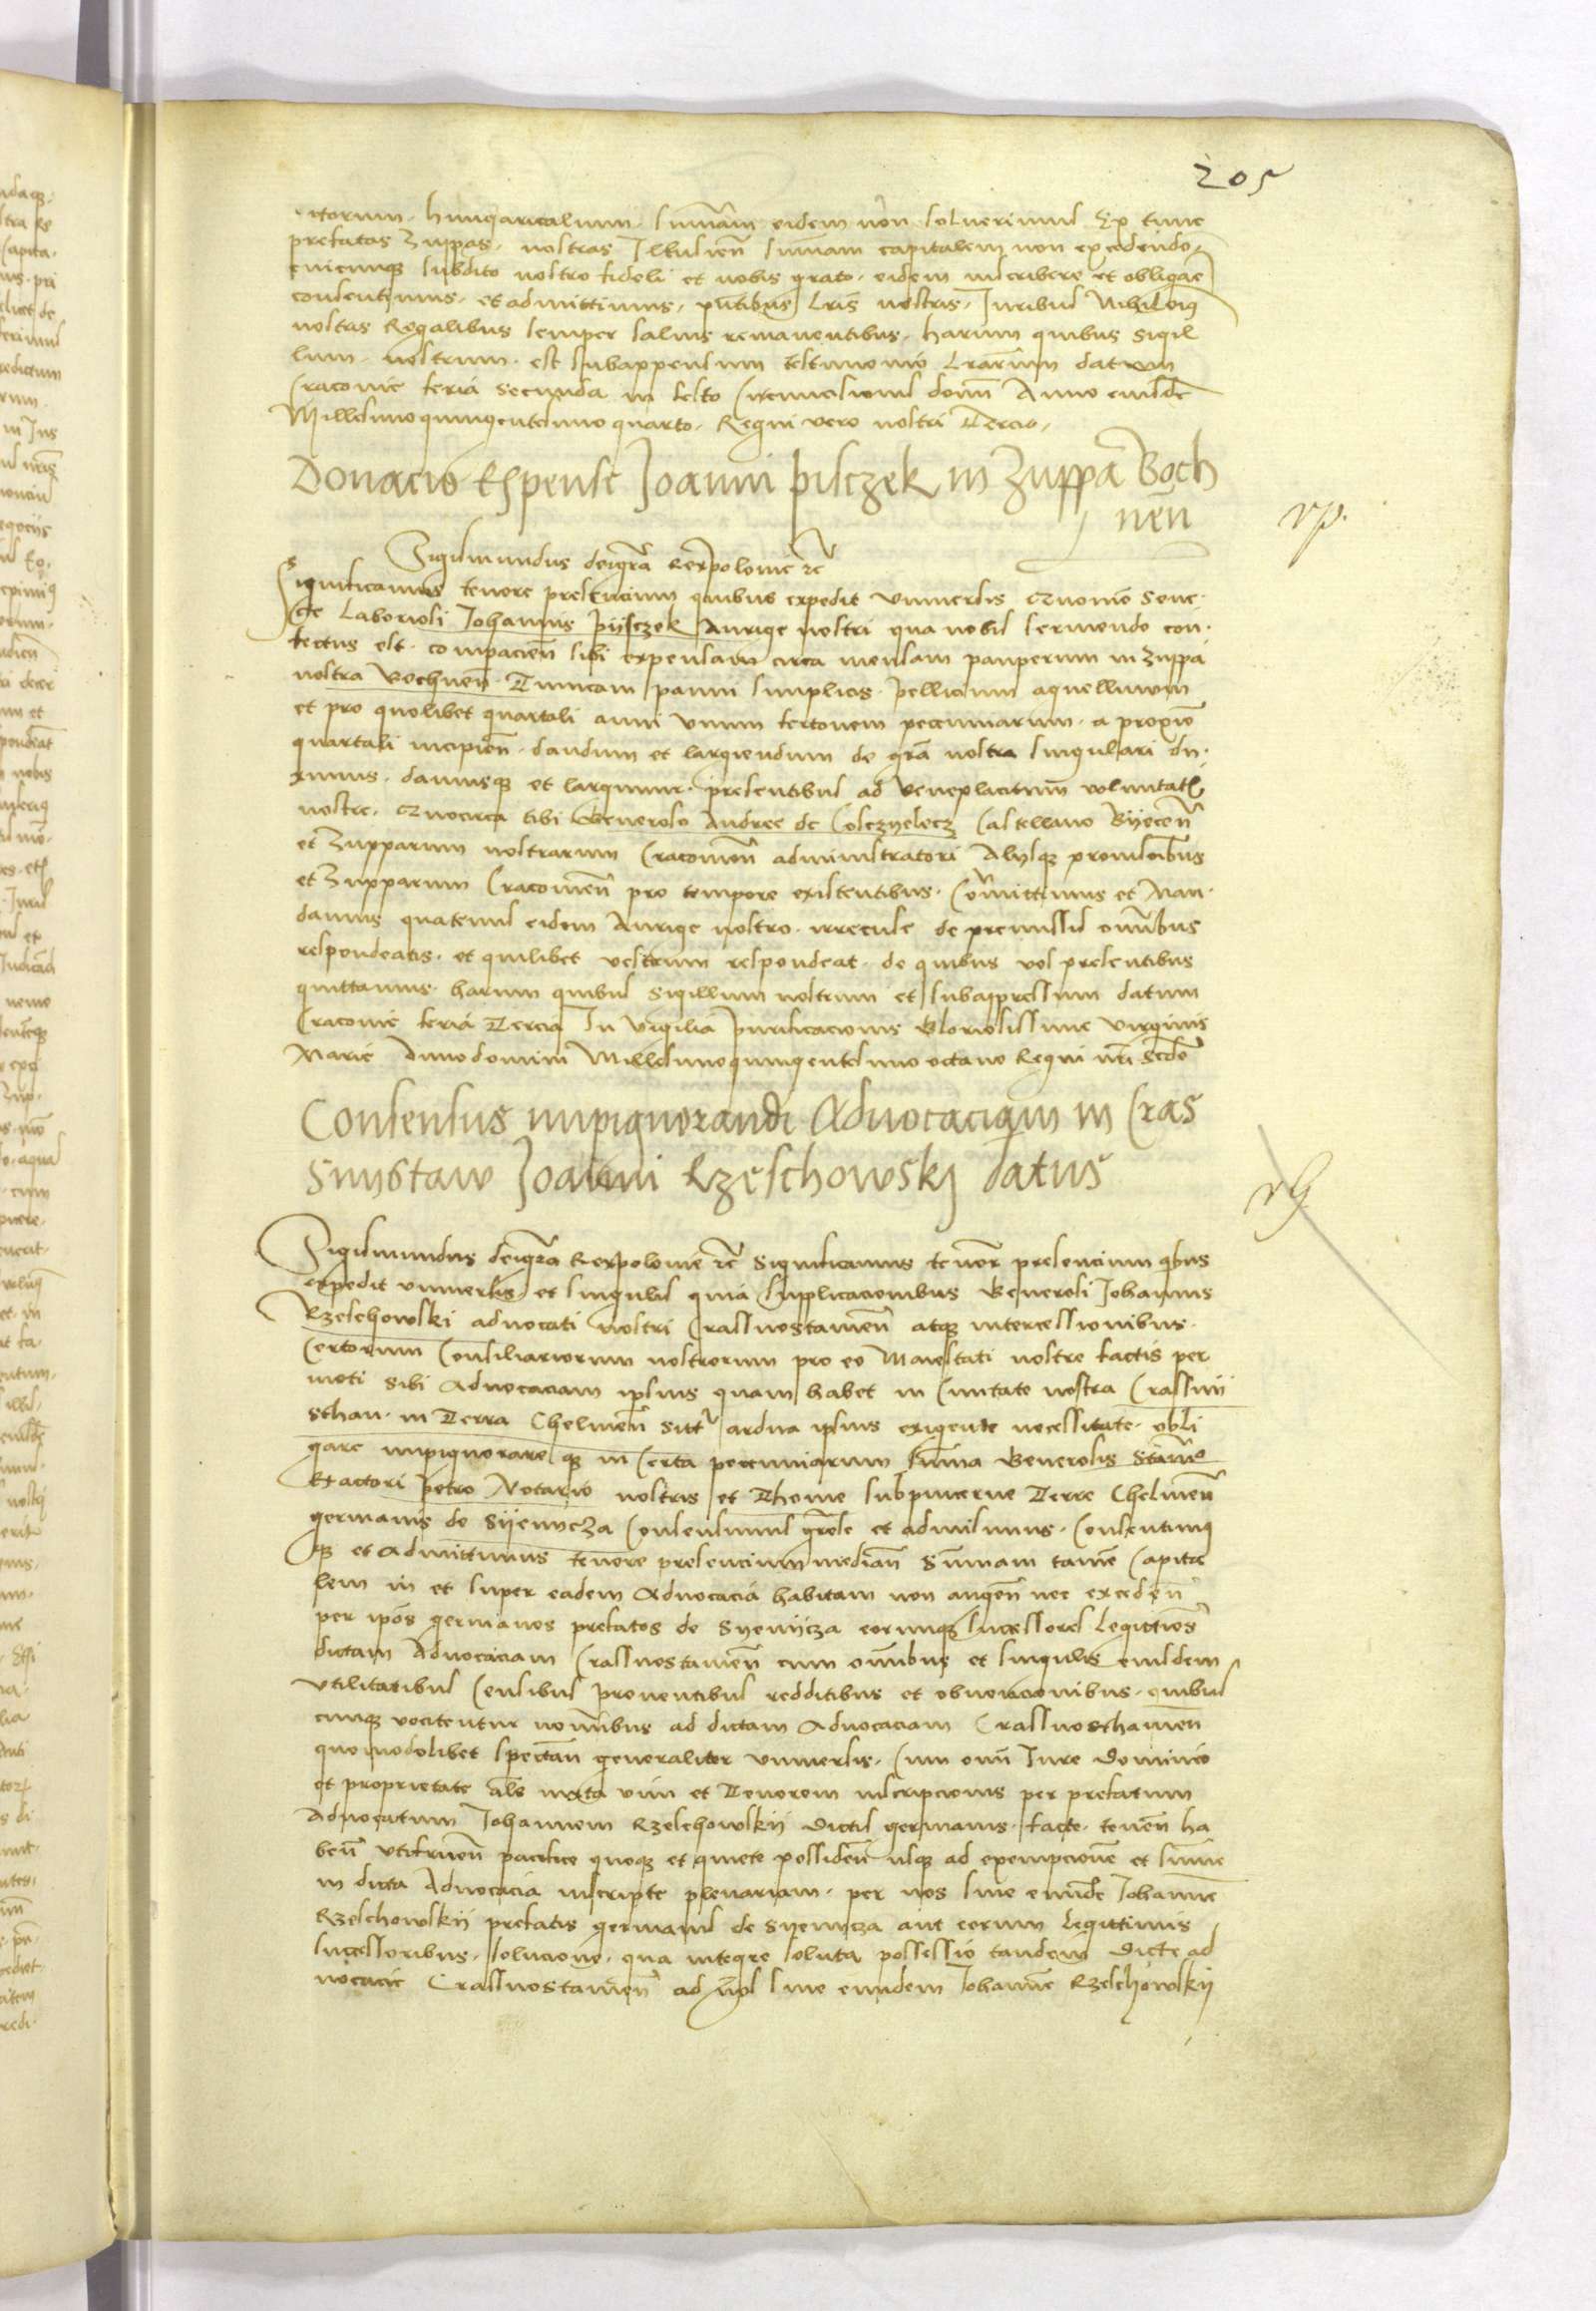 205
rtorum. hungaricalium. summam eidem non solverimus Ex tunc
prefatas Zuppas. nostras summam capitalem non excedendo
cuicunque subdito nostro fideli et nobis grato. eidem inscribere et obligare
consentimus. et admittimus. pntibus Lris nostris. Juribus
nostris Regalibus semper salvis remanentibus. harum quibus Sigil
lum. nostrum. est subappensum testimonio Lrarum datum
Cracovie feria secunda in festo Circumcisionis domni Anno eiusdem
Millesimo quingentesimo quarto. Regni vero nostri Tercio.
Donacio Expense Joanni pisczek in Zuppa Boch
nen
rp.
Sigismundus deigra Rexpolonie rc
Significamus tenore presencium quibus expedit universis Quomodo
Laboriosi Johannis pysczek Aurige nostri qua nobis serviendo con.
fectus est. compacien sibi expensam circa mensam pauperum in Zuppa
nostra Bochnen. Tunicam panni simplicis. pellicium agnellinum
et pro quolibet quartali anni unum fertonem pecuniarum. a proximo
quartali incipien. dandum et largiendum de gra nostra singulari du.
ximus. damusque et largimur. presentibus ad beneplacitum voluntatis
nostre. Quocirca tibi Generoso Andree de Cosczyelecz Castellano Byecen
et Zupparum nostrarum Cracovien administratori Alysque
et Zupparum Cracovien pro tempore existentibus. Comittimus et Man.
damus quatenus eidem Aurige nostro. irrecuse de premissis omnibus
respondeatis. et quilibet vestrum respondeat. de quibus vos presentibus
quittamus. harum quibus Sigillum nostrum est subappressum datum
Cracovie feria Tercia In Vigilia purificacionis Gloriosissime Virginis
Marie Annodomini Millesimoquingentesimo octavo Regni nri Scdo
Consensus impignorandi Advocaciam in Cras
Snystaw Joanni Rzeschowskj datus
Sigismundus deigra Rexpolonie rc Significamus tenore presencium qbus
expedit universis et singulis quia supplicacionibus Generosi Johannis
Rzeschowski advocati nostri Crassnostavien atque intercessionibus.
Certorum Consiliariorum nostrorum pro eo Maiestati nostre factis per
moti sibi Advocaciam ipsius quam habet in Civitate nostra Crassny
sthav. in Terra Chelmen ardua ipsius exigente necessitate. obli
gare impignorare que in Certa pecuniarum suma Generosis
Factori petro Notario nostris et Thome subpincerne Terre Chelmen
germanis de Syenycza Consensimus et admisimus. Consentimus
que et Admittimus tenore presencium median Summam tamen Capita
lem in et super eadem Advocacia habitam non augen nec exceden
per ipos germanos prefatos de Syenycza eorumque successores Legittimos
dictam Advocaciam Crassnostavien cum omnibus et singulis eiusdem
Utilitatibus Censibus proventibus redditibus et obvencionibus. quibus
cunque vocitentur nominibus ad dictam Advocaciam Crassnosthavien
quomodolibet spectan generaliter universis. Cum omni Jure Dominio
et proprietate als iuxta vim et Tenorem inscripcionis per prefatum
Advocatum Johannem Rzeschowskii dictis germanis. facte. tenen ha
ben Utifruen pacifice quoque et quiete possiden usque ad exempcionem et summe
in dicta Advocacia inscripte plenariam. per nos sive eundem Johannem
Rzeschowskii prefatis germanis de Syenycza aut eorum Legittimis
successoribus. solucione. qua integre soluta possessio tandem Dicte ad
vocacie Crassnostavien ad nos sive eundem Johannem Rzeschowskii